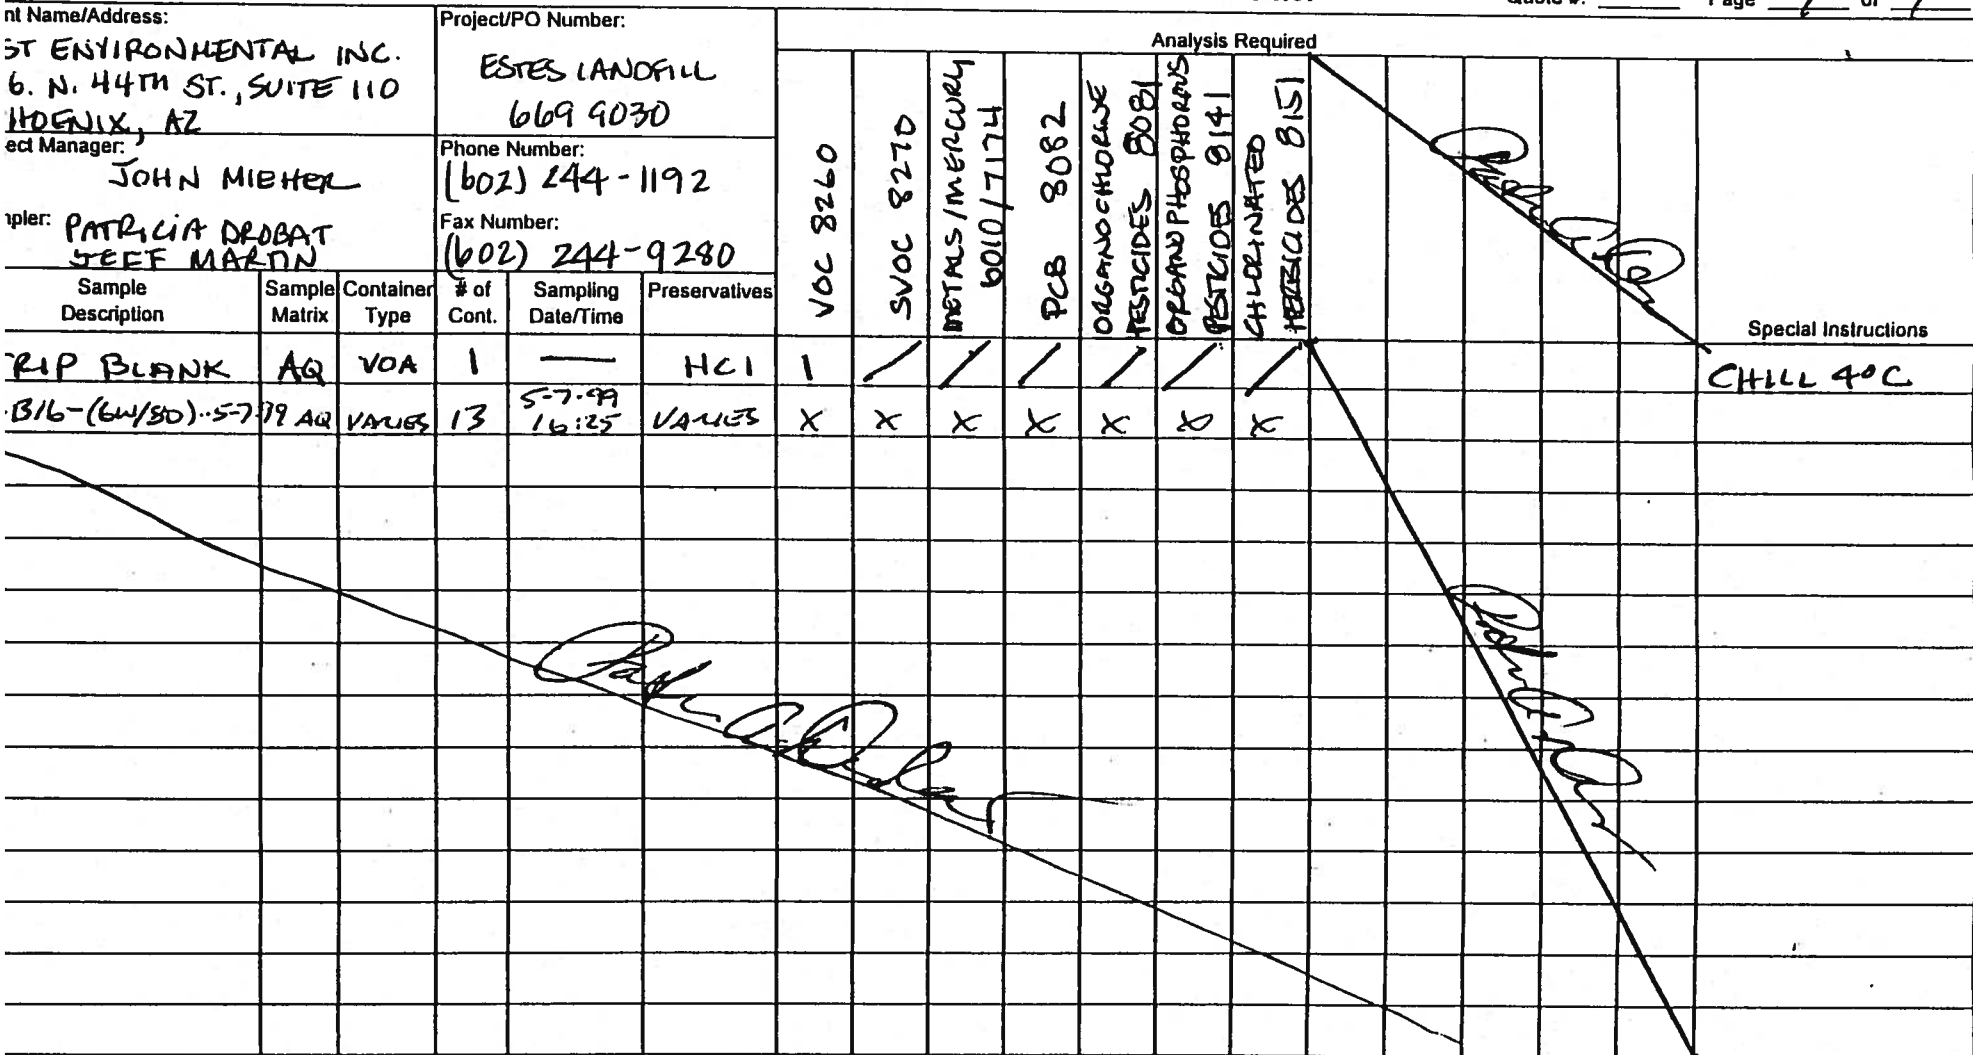 Quote #: Page 1 of 1
nt Name/Address:
ST ENVIRONMENTAL INC.
6. N. 44TH ST., SUITE 110
HOENIX, AZ
Project/PO Number:
ESTES LANDFILL
669 9030
ect Manager:
JOHN MIEHER
Phone Number:
(602) 244-1192
pler: PATRICIA DROBAT
JEFF MARTIN
Fax Number:
(602) 244-9280
Analysis Required
Sample Description
Sample Matrix
Container Type
# of Cont.
Sampling Date/Time
Preservatives
VOC 8260
SVOC 8270
METALS/MERCURY
6010/7174
PCB 8082
ORGANOCHLORINE
PESTICIDES 8081
ORGANOPHOSPHOROUS
PESTICIDES 8141
CHLORINATED
HERBICIDES 8151
Special Instructions
RIP BLANK AQ VOA 1 — HCl 1 / / / / / /
CHILL 4°C
B16-(GW/80)-5-7-99 AQ VARIES 13 5-7-99 16:25 VARIES X X X X X X X